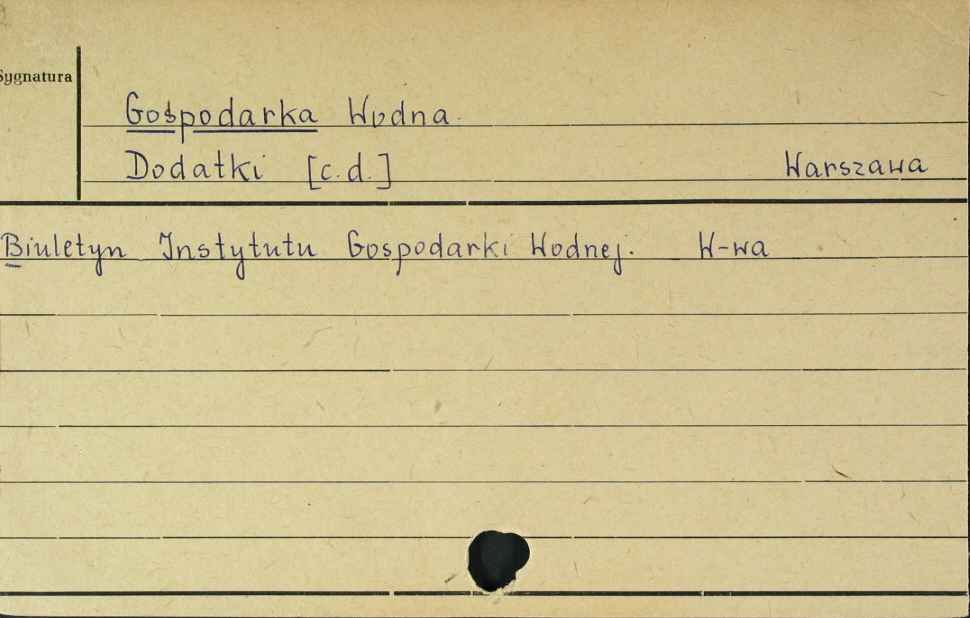 Sygnatura
Gospodarka Wodna.
Dodatki [c.d.] Warszawa
Biuletyn Instytutu Gospodarki Wodnej. W-wa